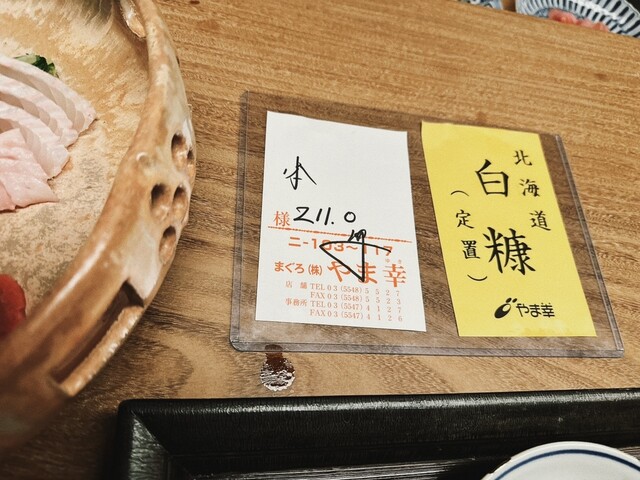 様 211.0
ニ-103~117
まぐろ(株)やま幸
店舗 TEL03(5548)5527
FAX03(5548)5523
事務所 TEL03(5547)4127
FAX03(5547)4126
北海道
白糠
(定置)
やま幸